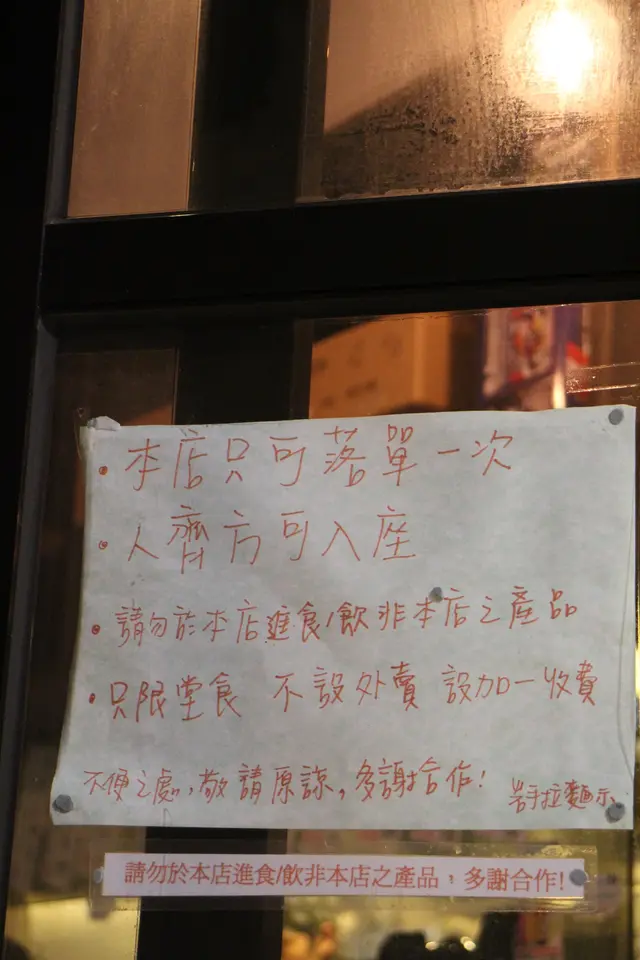 • 本店只可落單一次
• 人齊方可入座
• 請勿於本店進食/飲非本店之產品
• 只限堂食 不設外賣 設加一收費
不便之處,敬請原諒,多謝合作!
岩手拉麵示
請勿於本店進食/飲非本店之產品,多謝合作!